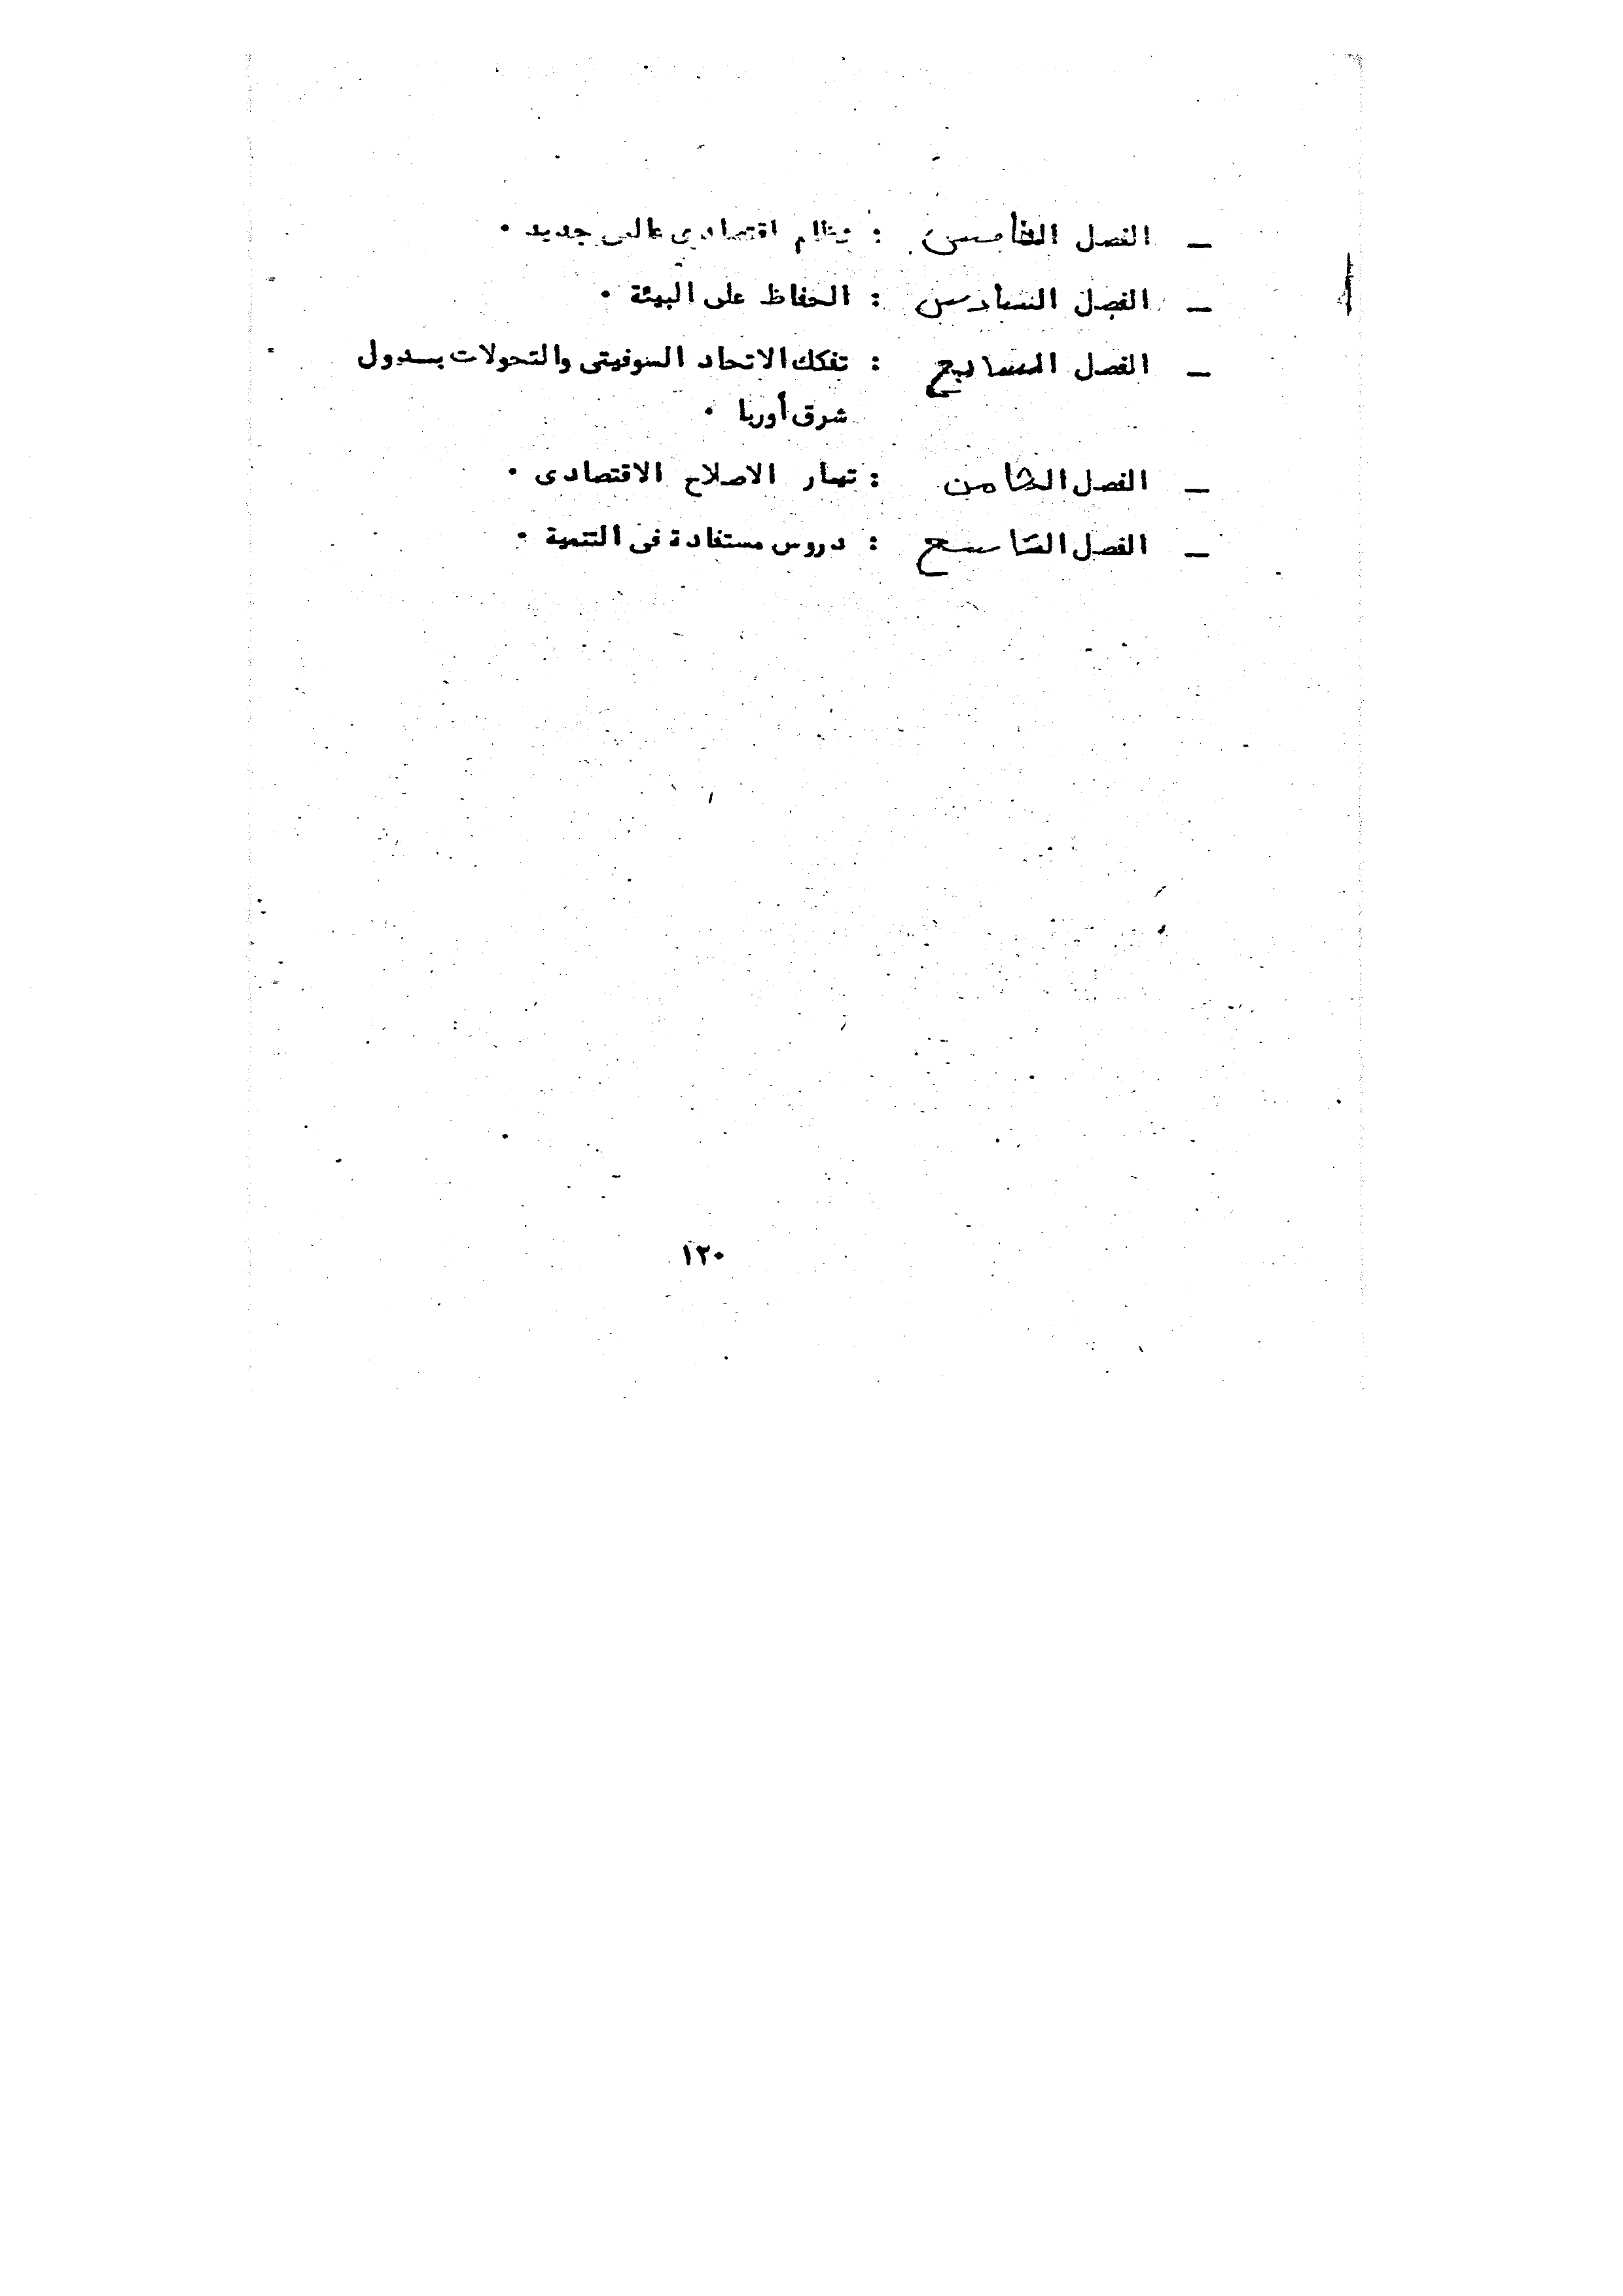 — الفصل الخامس : نظام اقتصادى عالمى جديد .
— الفصل السادس : الحفاظ على البيئة .
— الفصل السابع : تفكك الاتحاد السوفيتى والتحولات بــدول
شرق أوربا .
— الفصل الثامن : تيار الاصلاح الاقتصادى .
— الفصل التاسع : دروس مستفادة فى التنمية .
١٢٠